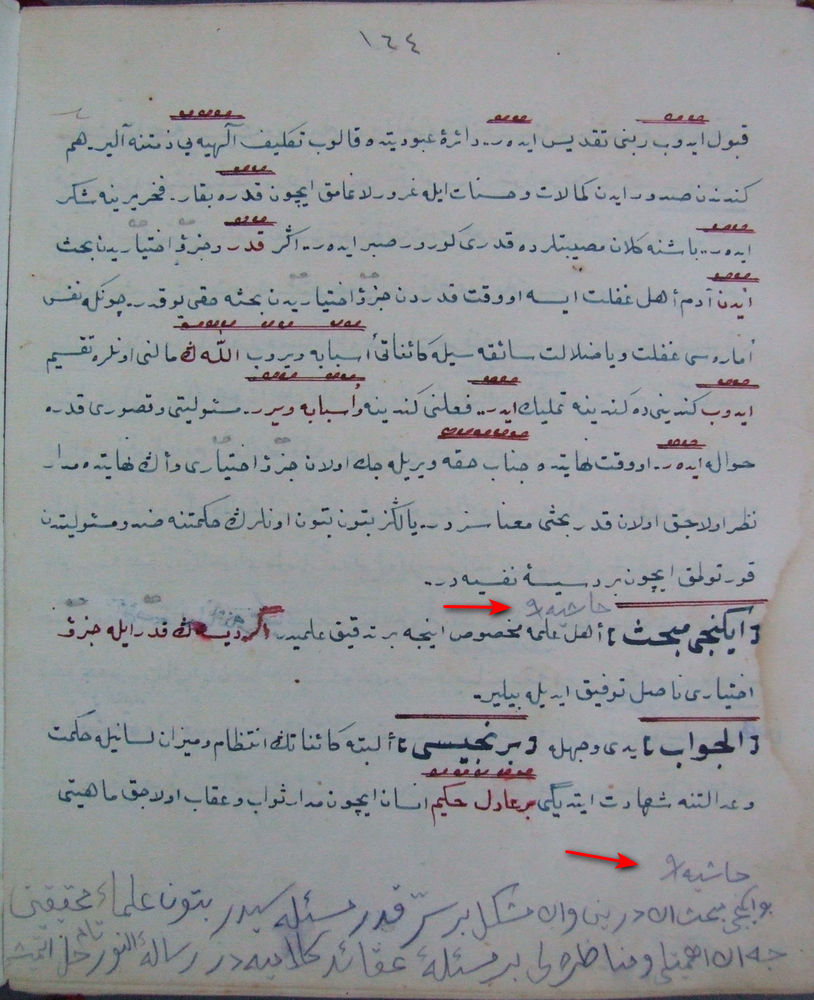 ١٦٤
قبول ايدوب ربنى تقديس ايده ر.. دائرۀ عبوديتده قالوب تكليف آلهيه يى ذمتنه آلير. هم
كندندن صدور ايدن كمالات و حسنات ايله غرورلانمامق ايچون قدره بقار. فخر يرينه شكر
ايده ر.. باشنه كلان مصيبتلرده قدرى كورور صبر ايده ر.. اگر قدر و جزؤ اختياريدن بحث
ايدن آدم أهل غفلت ايسه او وقت قدردن جزؤ اختياريدن بحثه حقى يوقدر. چونكه نفس
أماره سى غفلت ويا ضلالت سائقه سيله كائناتى أسبابه ويروب اللّٰه ڭ مالنى اونلره تقسيم
ايدوب كندينى ده كندينه تمليك ايدر.. فعلنى كندينه و أسبابه ويرر.. مسئوليتى و قصورى قدره
حواله ايده ر.. او وقت نهايتده جناب حقه ويريله جك اولان جزؤ اختيارى و أڭ نهايتده مدار
نظر اولاجق اولان قدر بحثى معناسزدر.. يالڭز بتون بتون اونلرڭ حكمتنه ضد و مسئوليتدن
قورتولمق ايچون بر دسيسۀ نفسيه در..
حاشيه
[ ايكنجى مبحث ] أهل علمه مخصوص اينجه بر تدقيق علميدر اگر ديسه ڭ قدر ايله جزؤ
اختيارى ناصل توفيق ايديله بيلير.
[ الجواب ] يدى وجهله [ برنجيسى ] ألبته كائناتڭ انتظام و ميزان لسانيله حكمت
و عدالتنه شهادت ايتديگى بر عادل حكيم انسان ايچون مدار ثواب و عقاب اولاجق ماهيتى
حاشيه
بو ايكنجى مبحث اڭ درين و اڭ مشكل بر سرّ قدر مسئله سيدر بتون علماء محققينى
جه اڭ اهميتلى و مناظره لى بر مسئلۀ عقائد كلاميه در رسالۀ النور تام حل ايتمش